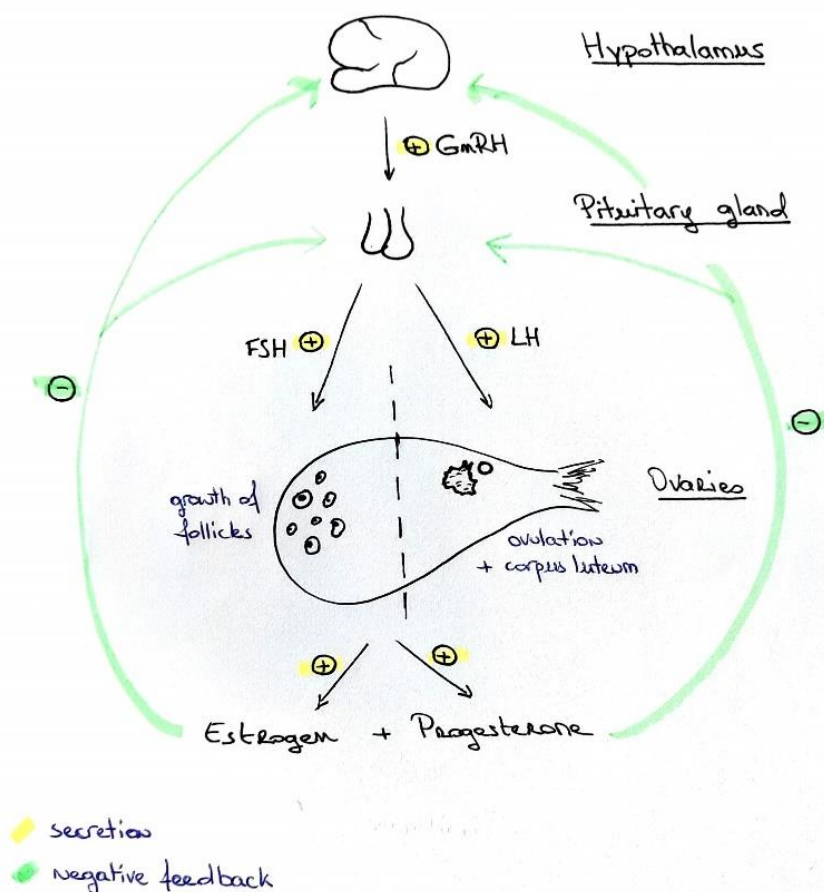 Hypothalamus
⊕ GnRH
Pituitary gland
FSH ⊕
⊕ LH
⊖
⊖
growth of
follicles
Ovaries
ovulation
+ corpus luteum
⊕
⊕
Estrogen + Progesterone
secretion
negative feedback